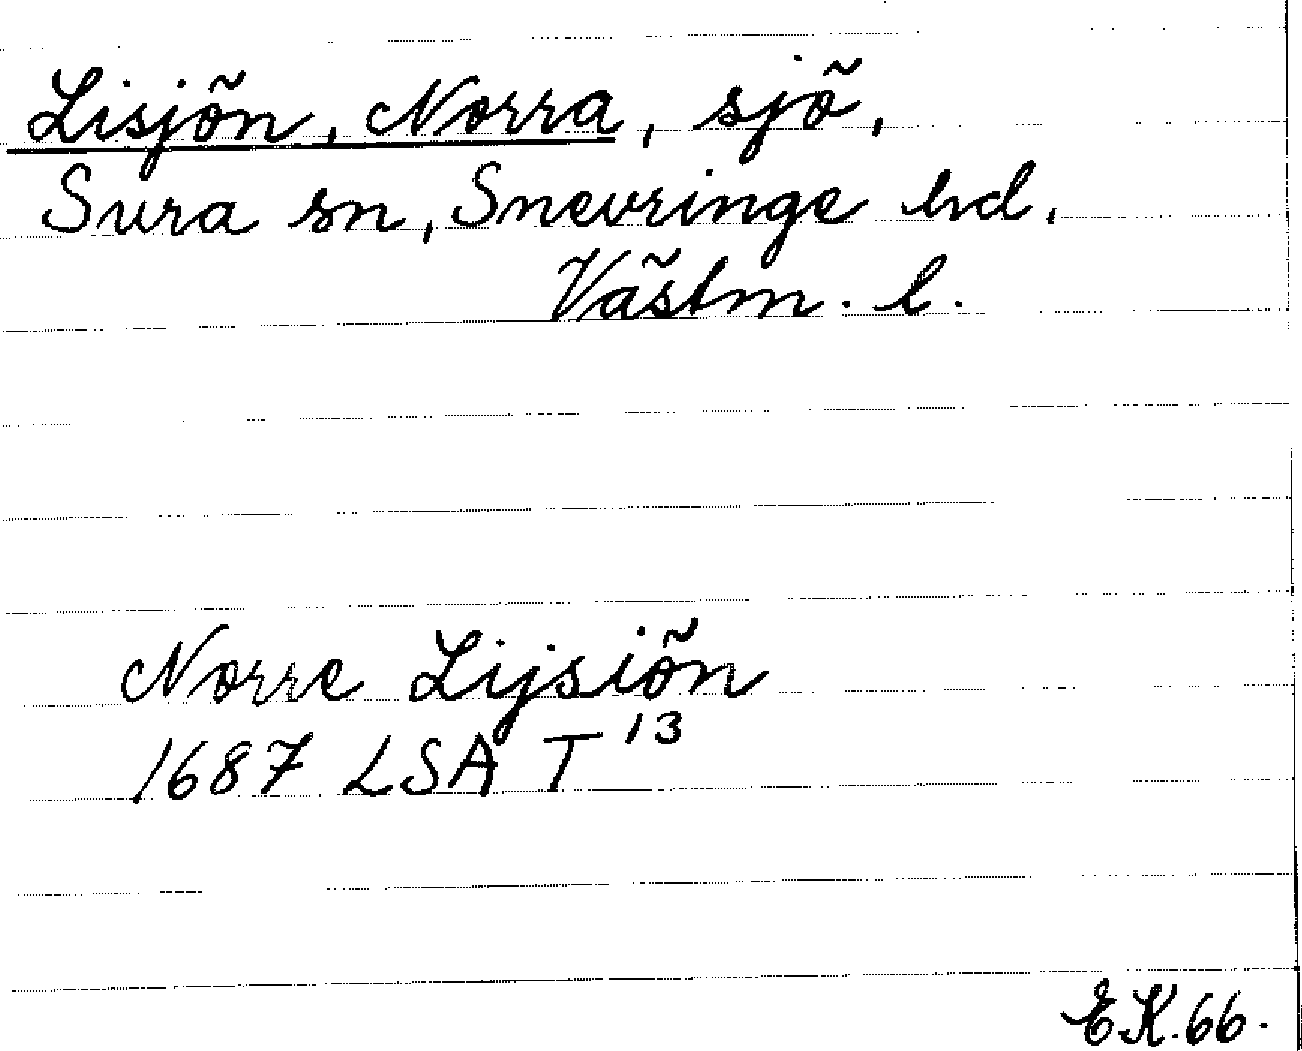 Lisjön, Norra, sjö,
Sura sn, Snevringe hd,
Västm. l.
Norre Lijsiön
1687 LSA T 13
EK. 66.